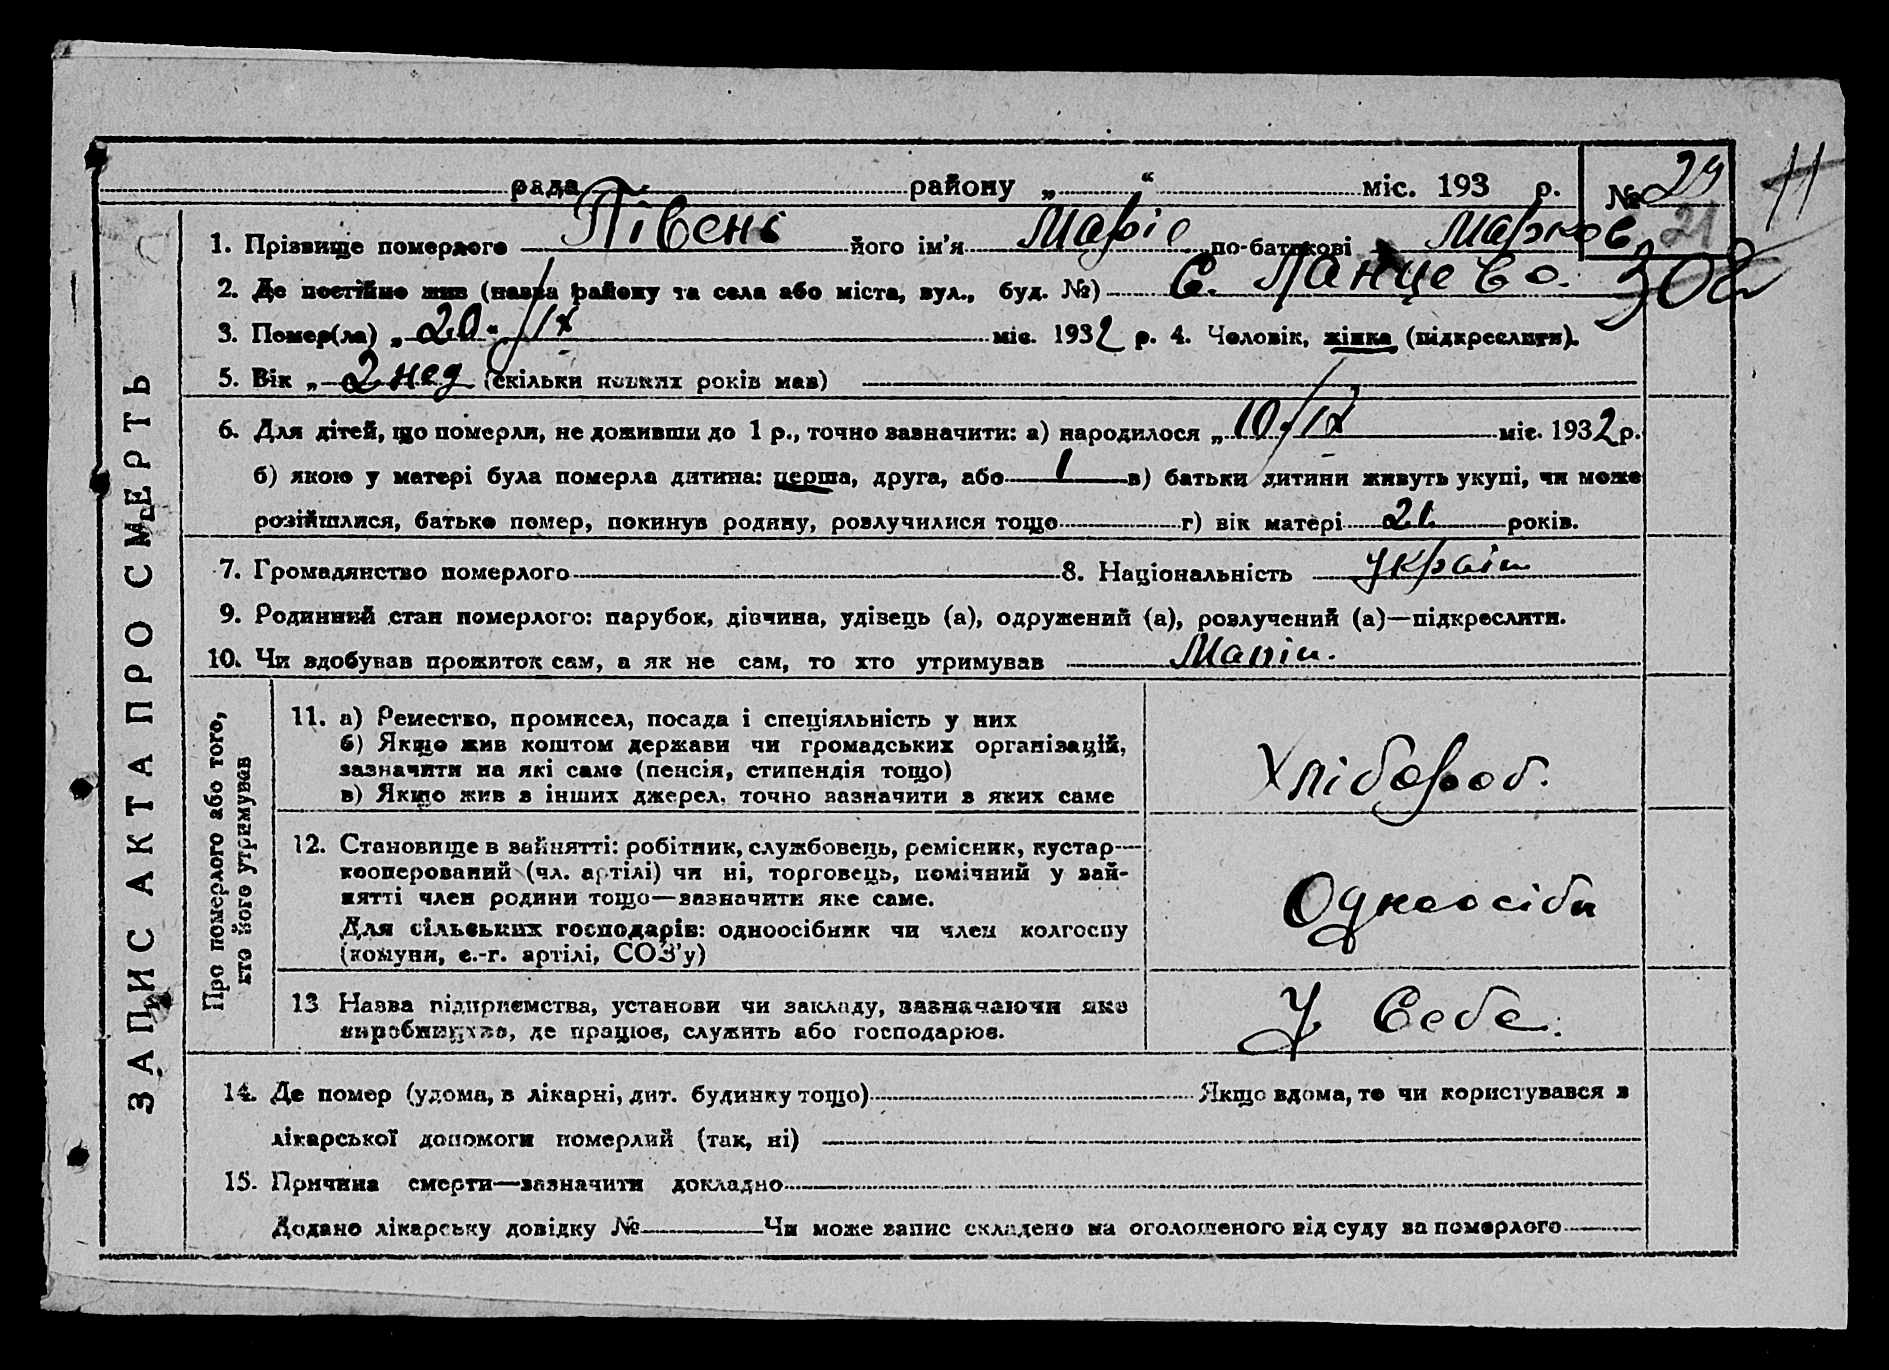 рада району „ “ міс. 193 р. № 29
11
21
1. Прізвище померлого Півень його ім’я Маріє по-батькові Марков
308
2. Де постійно жив (назва району та села або міста, вул., буд. №) С. Панцево.
3. Помер(ла) „ 20 “ /IX міс. 1932 р. 4. Чоловік, жінка (підкреслити).
5. Вік „ 2 нед (скільки повних років мав)
6. Для дітей, що померли, не доживши до 1 р., точно зазначити: а) народилося „ 10/IX міс. 1932 р.
б) якою у матері була померла дитина: перша, друга, або 1 в) батьки дитини живуть укупі, чи може
розійшлися, батько помер, покинув родину, розлучилися тощо г) вік матері 21 років.
7. Громадянство померлого 8. Національність Україн
9. Родинний стан померлого: парубок, дівчина, удівець (а), одружений (а), розлучений (а)—підкреслити.
10. Чи здобував прожиток сам, а як не сам, то хто утримував
ЗАПИС АКТА ПРО СМЕРТЬ
Про померлого або того,
хто його утримував
11. а) Ремество, промисел, посада і спеціяльність у них
б) Якщо жив коштом держави чи громадських організацій,
зазначити на які саме (пенсія, стипендія тощо)
в) Якщо жив з інших джерел, точно зазначити з яких саме
Хлібороб.
12. Становище в зайнятті: робітник, службовець, ремісник, кустар—
кооперований (чл. артілі) чи ні, торговець, помічний у зай-
нятті член родини тощо—зазначити яке саме.
Для сільських господарів: одноосібник чи член колгоспу
(комуни, с.-г. артілі, СОЗ’у)
Одноосібн
13 Назва підприємства, установи чи закладу, зазначаючи яке
виробництво, де працює, служить або господарює.
У Себе.
14. Де помер (удома, в лікарні, дит. будинку тощо) Якщо вдома, то чи користувався з
лікарської допомоги померлий (так, ні)
15. Причина смерти—зазначити докладно
Додано лікарську довідку № Чи може запис складено на оголошеного від суду за померлого